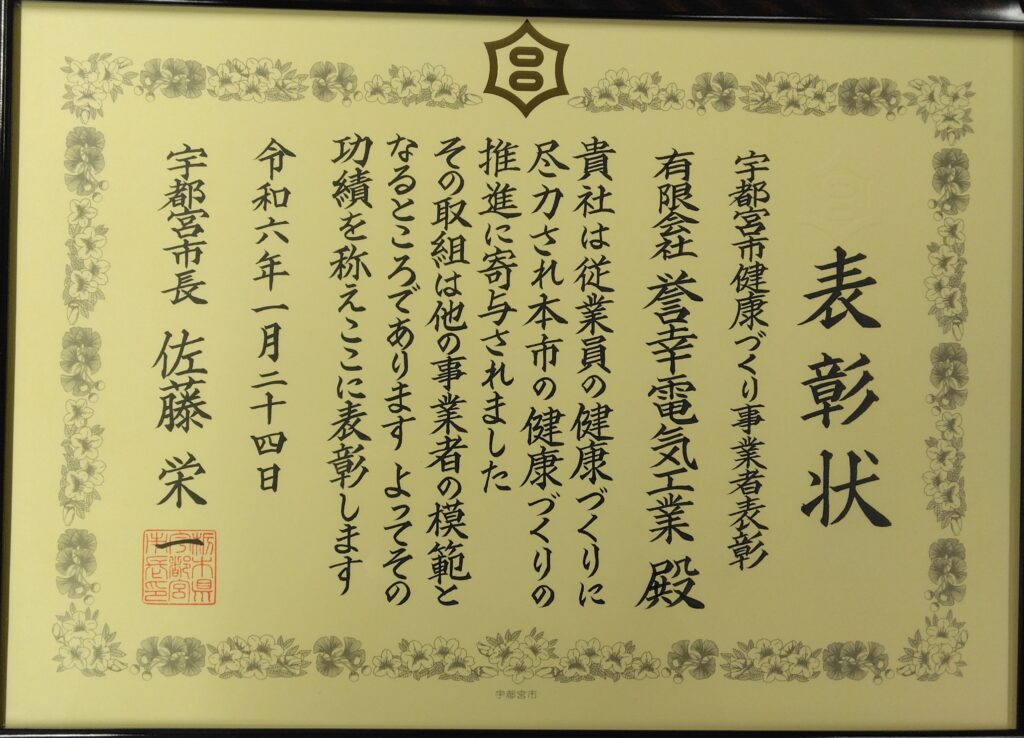 表彰状
宇都宮市健康づくり事業者表彰
有限会社 誉幸電気工業 殿
貴社は従業員の健康づくりに
尽力され本市の健康づくりの
推進に寄与されました
その取組は他の事業者の模範と
なるところであります よってその
功績を称えここに表彰します
令和六年一月二十四日
宇都宮市長 佐藤 栄一
栃木県
宇都宮
市長印
宇都宮市